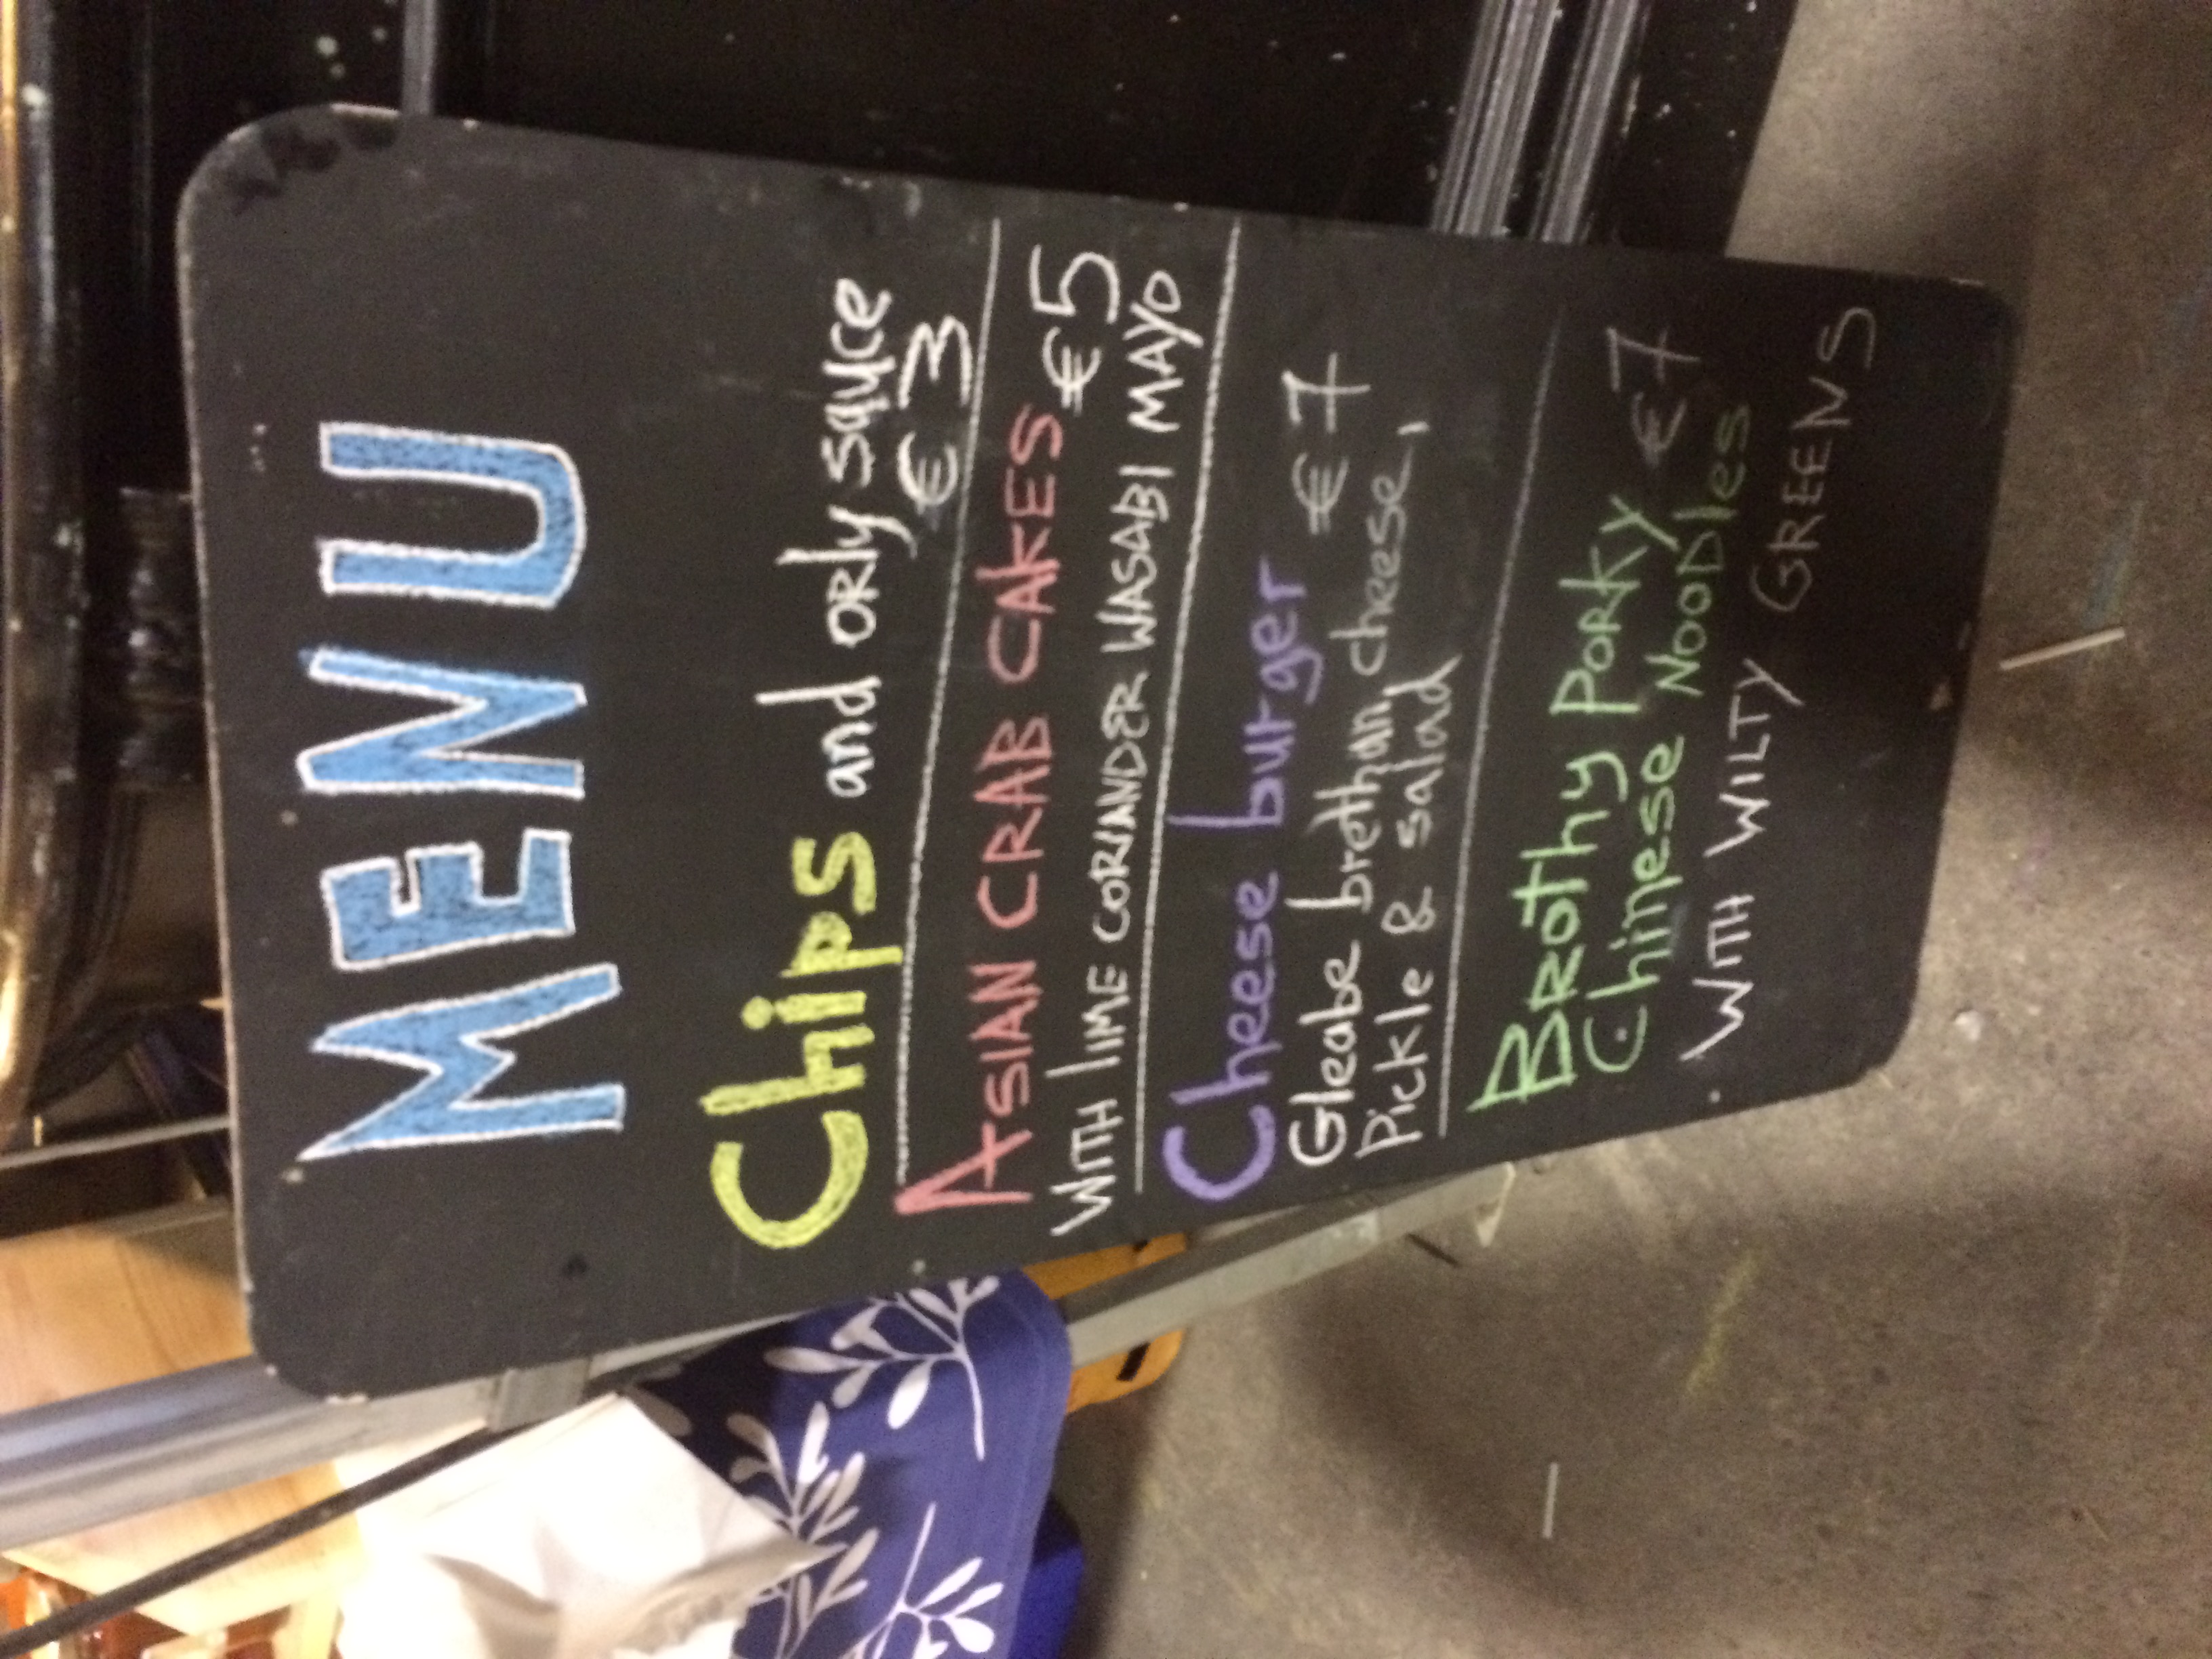 MENU
Chips and orly sauce
€3
ASIAN CRAB CAKES €5
WITH LIME CORIANDER WASABI MAYO
Cheese burger €7
Gleabe brethan cheese,
Pickle & salad
Brothy Porky €7
Chinese Noodles
WITH WILTY GREENS